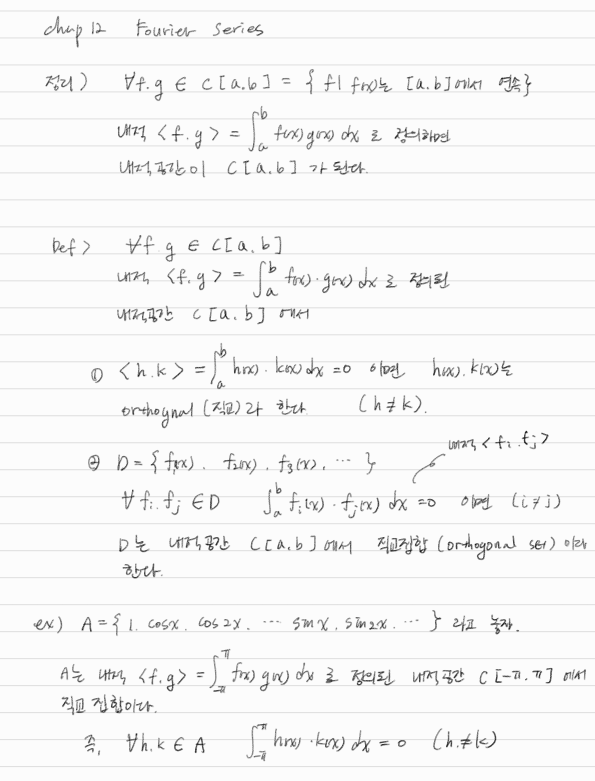 chap 12 Fourier Series
정리) ∀f.g ∈ C[a.b] = { f | f(x)는 [a.b]에서 연속}
내적 <f.g> = ∫_a^b f(x)g(x) dx 로 정의하면
내적공간이 C[a.b] 가 된다.
Def> ∀f g ∈ C[a.b]
내적 <f.g> = ∫_a^b f(x)·g(x) dx 로 정의된
내적공간 C[a.b] 에서
① <h.k> = ∫_a^b h(x)·k(x) dx = 0 이면 h(x). k(x)는
orthognal (직교)라 한다 (h≠k).
② D = { f₁(x). f₂(x). f₃(x), ··· }
내적 <fᵢ.fⱼ>
∀ fᵢ. fⱼ ∈ D ∫_a^b fᵢ(x)·fⱼ(x) dx = 0 이면 (i≠j)
D는 내적공간 C[a.b]에서 직교집합 (orthogonal set) 이라
한다.
ex) A = { 1. cosx. cos2x. ··· sinx. sin2x. ··· } 라고 놓자.
A는 내적 <f.g> = ∫_-π^π f(x) g(x) dx 로 정의된 내적공간 C[-π.π]에서
직교 집합이다.
즉, ∀h.k ∈ A ∫_-π^π h(x)·k(x) dx = 0 (h.≠k)